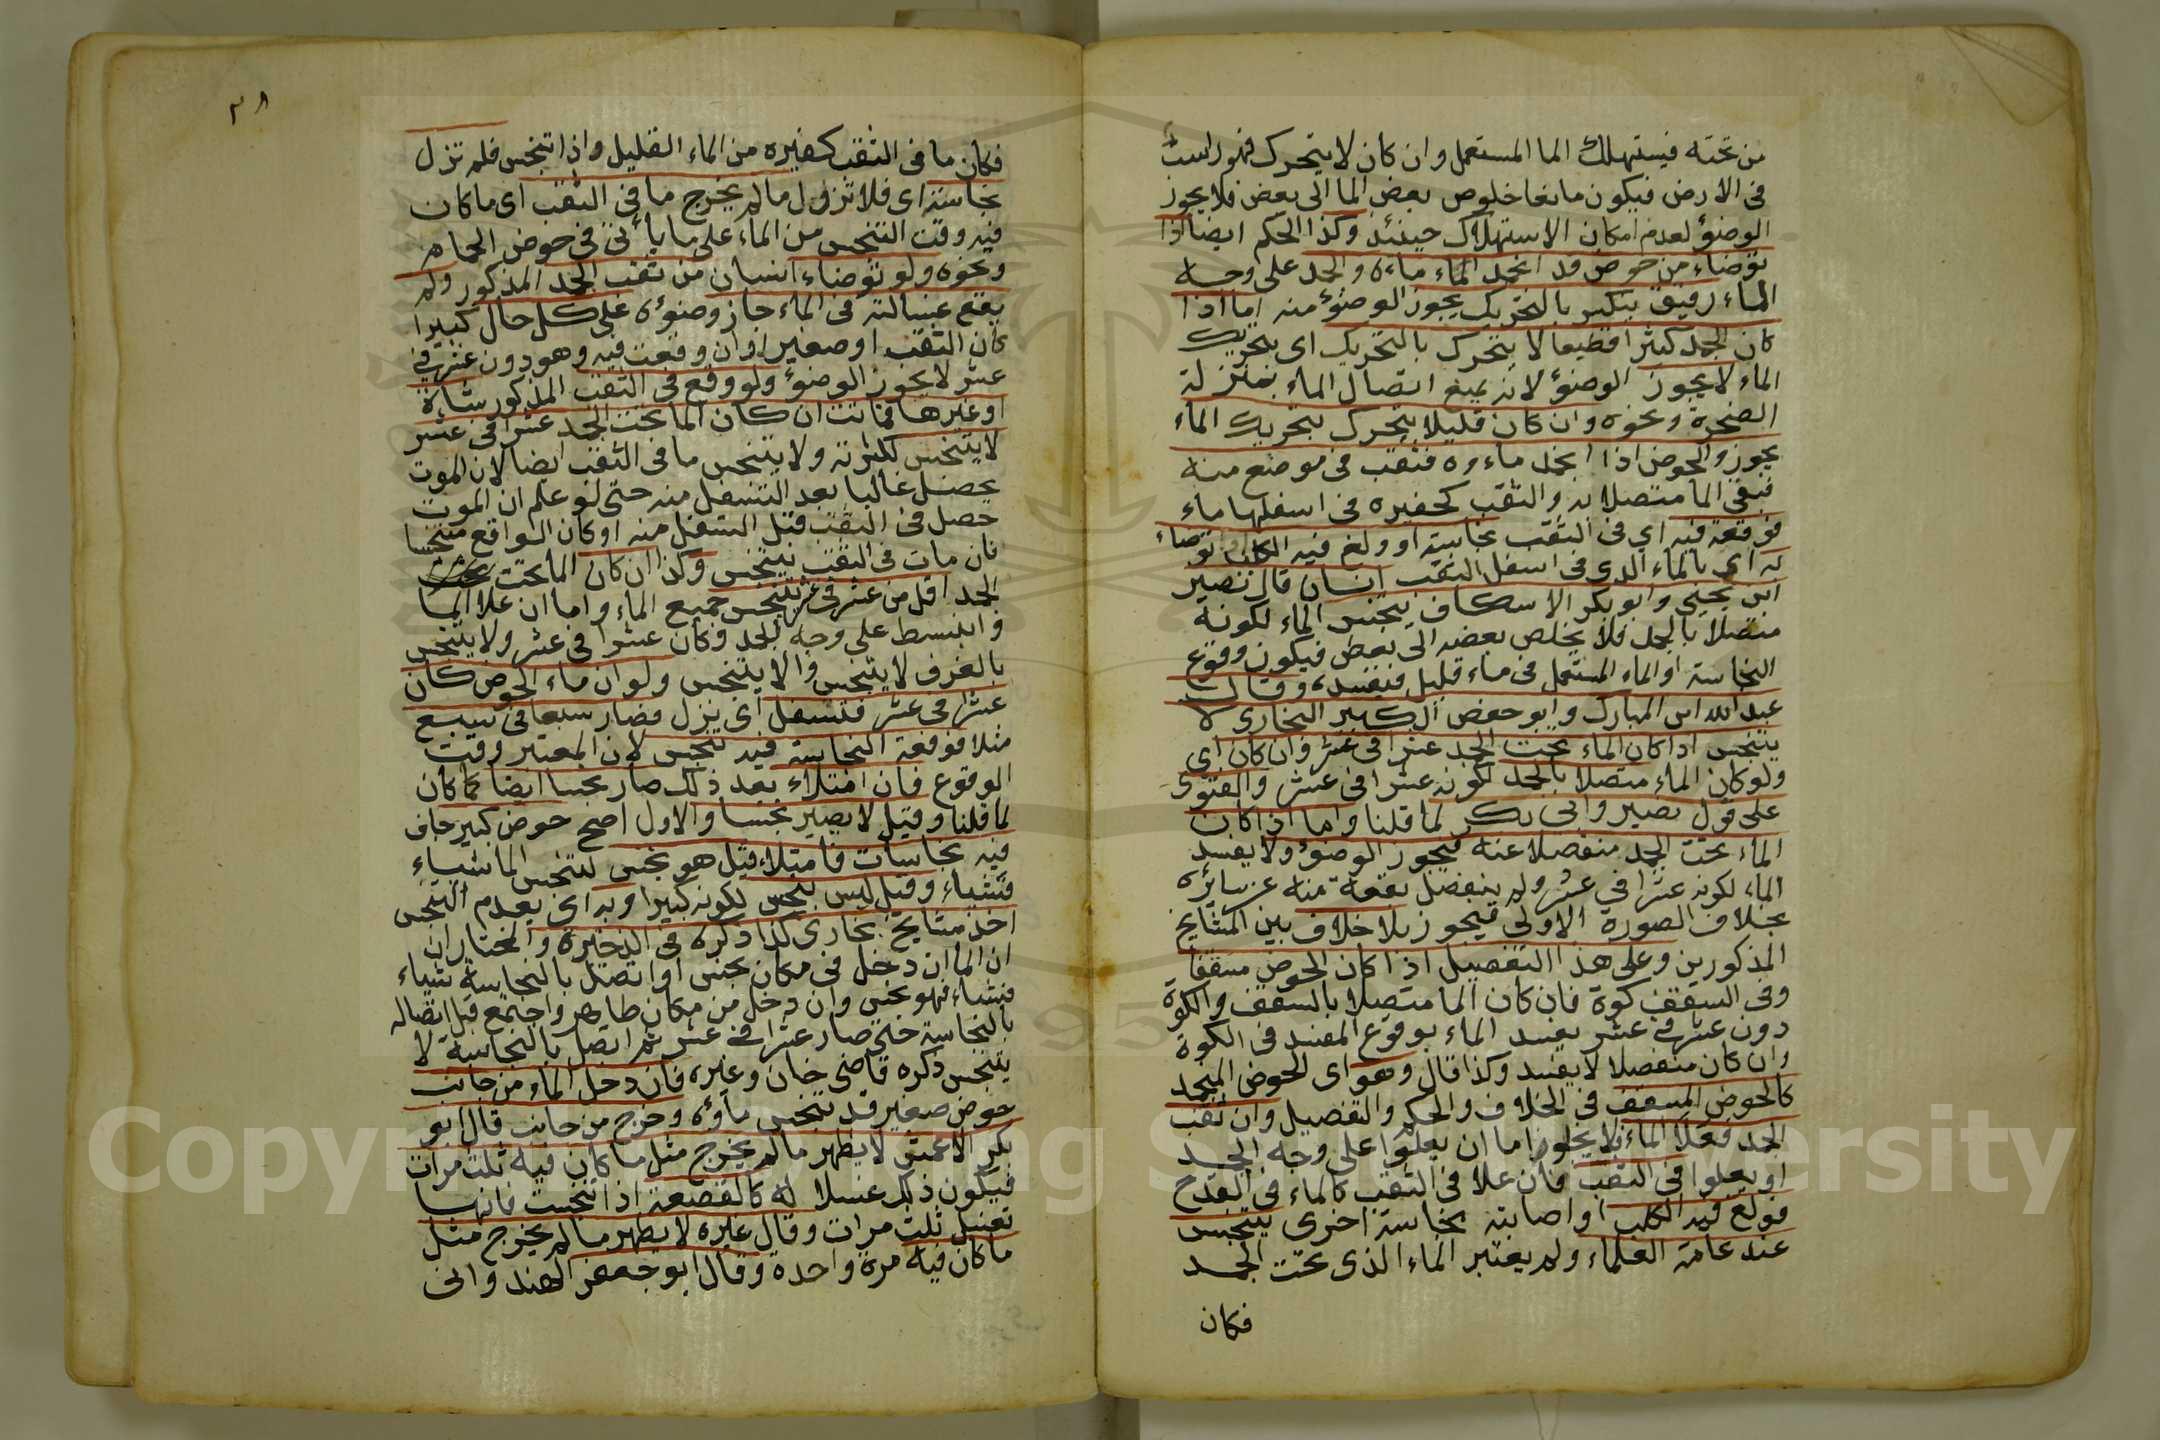 من تحته فيستهلك الما المستعمل وان كان لا يتحرك فهو راسب
فى الارض فيكون مانعا خلوص بعض الما الى بعض فلا يجوز
الوضوٴ لعدم امكان الاستهلاك حينئذ وكذا الحكم ايضا اذا
توضاء من حوض قد انجمد الماء ماءه والجمد على وجه
الماء رقيق ينكسر بالتحريك يجوز الوضوٴ منه اما اذا
كان الجمد كثيرا قطعا لا يتحرك بالتحريك اى بتحريك
الماء لا يجوز الوضوٴ لانه يمنع اتصال الماء بمنزلة
الصخرة ونحوه وان كان قليلا يتحرك بتحريك الماء
يجوز والحوض اذا انجمد ماءوه فثقب فى موضع منه
فبقى الما متصلا به والثقب كحفيره فى اسفلها ماء
فوقعة فيه اي فى الثقب نجاسة او ولغ فيه الكلب او توضاء
به اي بالماء الذى فى اسفل الثقب انسان قال نصير
ابن يحيى وابو بكر الاسكاف يتنجس الماء لكونه
متصلا بالجمد فلا يخلص بعضه الى بعض فيكون وقوع
النجاسة او الماء المستعمل فى ماء قليل فتفسده وقال
عبد الله ابن المبارك وابو حفص الكبير البخارى لا
يتنجس اذا كان الماء تحت الجمد عشرا فى عشر وان كان اى
ولو كان الماء متصلا بالجمد لكونه عشرا فى عشر والفتوى
على قول نصير وابى بكر لما قلنا واما اذا كان
الماء تحت الجمد منفصلا عنه فيجوز الوضوٴ ولا يفسد
الماء لكونه عشرا في عشر ولم ينفصل بقعة منه عن سايره
بخلاف الصورة الاولى فيجوز بلا خلاف بين المشايخ
المذكورين وعلى هذا التفصيل اذا كان الحوض مسقفا
وفى السقف كوة فان كان الما متصلا بالسقف والكوة
دون عشر في عشر يفسد الماء بوقوع المفسد فى الكوة
وان كان منفصلا لا يفسد وكذا قال وهو اى الحوض المنجمد
كالحوض المسقف فى الخلاف والحكم والتفصيل وان ثقب
الجمد فعلا الماء فلا يخلو اما ان يعلوا على وجه الجمد
او يعلوا فى الثقب فان علا فى الثقب كالماء فى القدح
فولغ فيه الكلب او اصابته نجاسة اخرى يتنجس
عند عامة العلماء ولم يعتبر الماء الذى تحت الجمد
فكان
٣٨
فكان ما فى الثقب كغيره من الماء القليل واذا تنجس فلم تزل
نجاسته اى فلا تزول ما لم يخرج ما فى الثقب اى ما كان
فيه وقت التنجس من الماء على ما ياٴتى فى حوض الحمام
ونحوه ولو توضاء انسان من ثقب الجمد المذكور ولم
يقع غسالته فى الماء جاز وضوٴه على كل حال كبيرا
كان الثقب او صغيرا وان وقعت فيه وهو دون عشر في
عشر لا يجوز الوضوٴ ولو وقع فى الثقب المذكور شاة
او غيرها فماتت ان كان الما تحت الجمد عشرا فى عشر
لا يتنجس لكثرته ولا يتنجس ما فى الثقب ايضا لان الموت
يحصل غالبا بعد التسفل منه حتى لو علم ان الموت
حصل فى الثقب قبل التسفل منه او كان الواقع متنجسا
فان مات فى الثقب يتنجس وكذا ان كان الما تحت
الجمد اقل من عشر في عشر يتنجس جميع الماء واما ان علا الما
وانبسط على وجه الجمد وكان عشرا فى عشر ولا يتنجس
بالغرف لا يتنجس والا يتنجس ولو ان ماء الحوض كان
عشرا فى عشر فتسفل اى نزل فصار سبعا فى سبع
مثلا فوقعة النجاسة فيه تنجس لان المعتبر وقت
الوقوع فان امتلاء بعد ذلك صار نجسا ايضا كما كان
لما قلنا وقيل لا يصير نجسا والاول اصح حوض كبير جاف
فيه نجاسات فامتلاء قيل هو نجس لتنجس الما شياء
فشياء وقيل ليس بنجس لكونه كبيرا وبه اى بعدم التنجس
اخذ مشايخ بخارى كذا ذكره فى الذخيرة والمختار ان
ان الما ان دخل فى مكان نجس او اتصل بالنجاسة شياء
فشياء فهو نجس وان دخل من مكان طاهر واجتمع قبل اتصاله
بالنجاسة حتى صار عشرا في عشر ثم اتصل بالنجاسة لا
يتنجس ذكره قاضى خان وغيره فان دخل الماء من جانب
حوض صغير قد تنجس ماوٴه وخرج من جانب قال ابو
بكر الاعمش لا يطهر ما لم يخرج مثل ما كان فيه ثلث مرات
فيكون ذلك غسلا له كالقصعة اذا تنجست فانها
تغسل ثلث مرات وقال غيره لا يطهر ما لم يخرج مثل
ما كان فيه مرة واحدة وقال ابو جعفر الهندوانى
Copyright © King Saud University